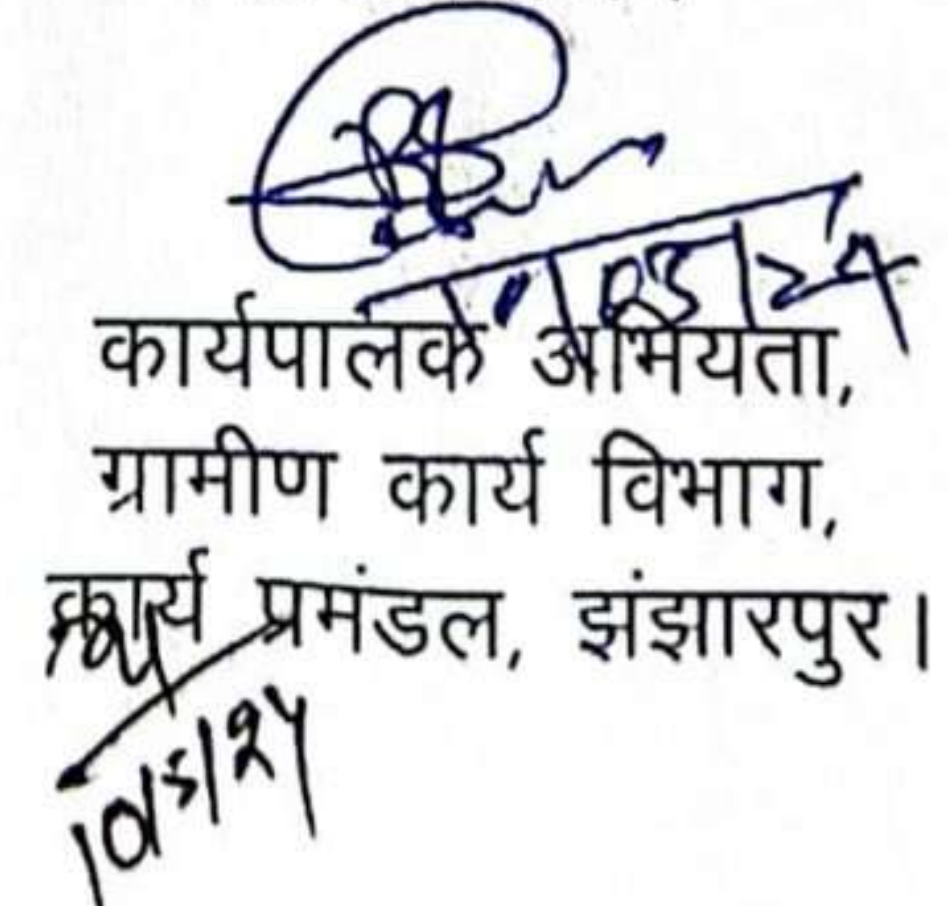 10/05/24
कार्यपालक अभियंता,
ग्रामीण कार्य विभाग,
कार्य प्रमंडल, झंझारपुर।
10/5/24